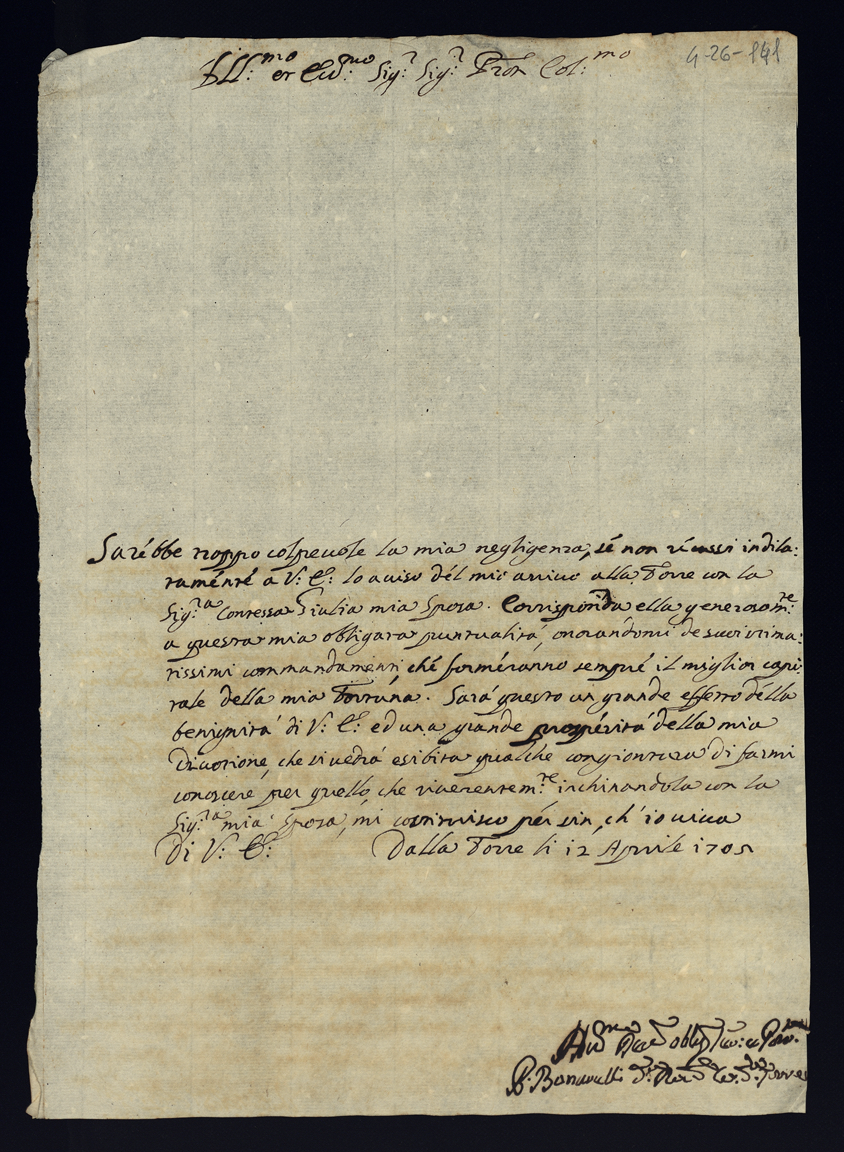 Ill:mo et Ecc:mo Sig:r Sig:r Pron Col:mo
4-26-141
Sarébbe troppo colpevole la mia negligenza, sé non récassi indila:
taménté a V: E: lo aviso dél mio arrivo alla Torre con la
Sig:ra Contessa Giulia mia Sposa. Corrisponda ella generosam:te
a questa mia obligata puntualitá, onorándomi de suoi stima:
tissimi commandamenti, ché forméranno sempré il miglior capi:
tale della mia Fortuna. Sará questo un grande effetto délla
benignitá di V: E: ed una gránde prospéritá della mia
Divotione, che si vedrá esibita qualche congiontura di farmi
conoscere per quello, che riverentem:te inchinandola con la
Sig:ra mia Sposa, mi costituisco pér sin, ch' io viva
Di V: E: Dalla Torre li 12 Aprile 1705
oblig
Torre